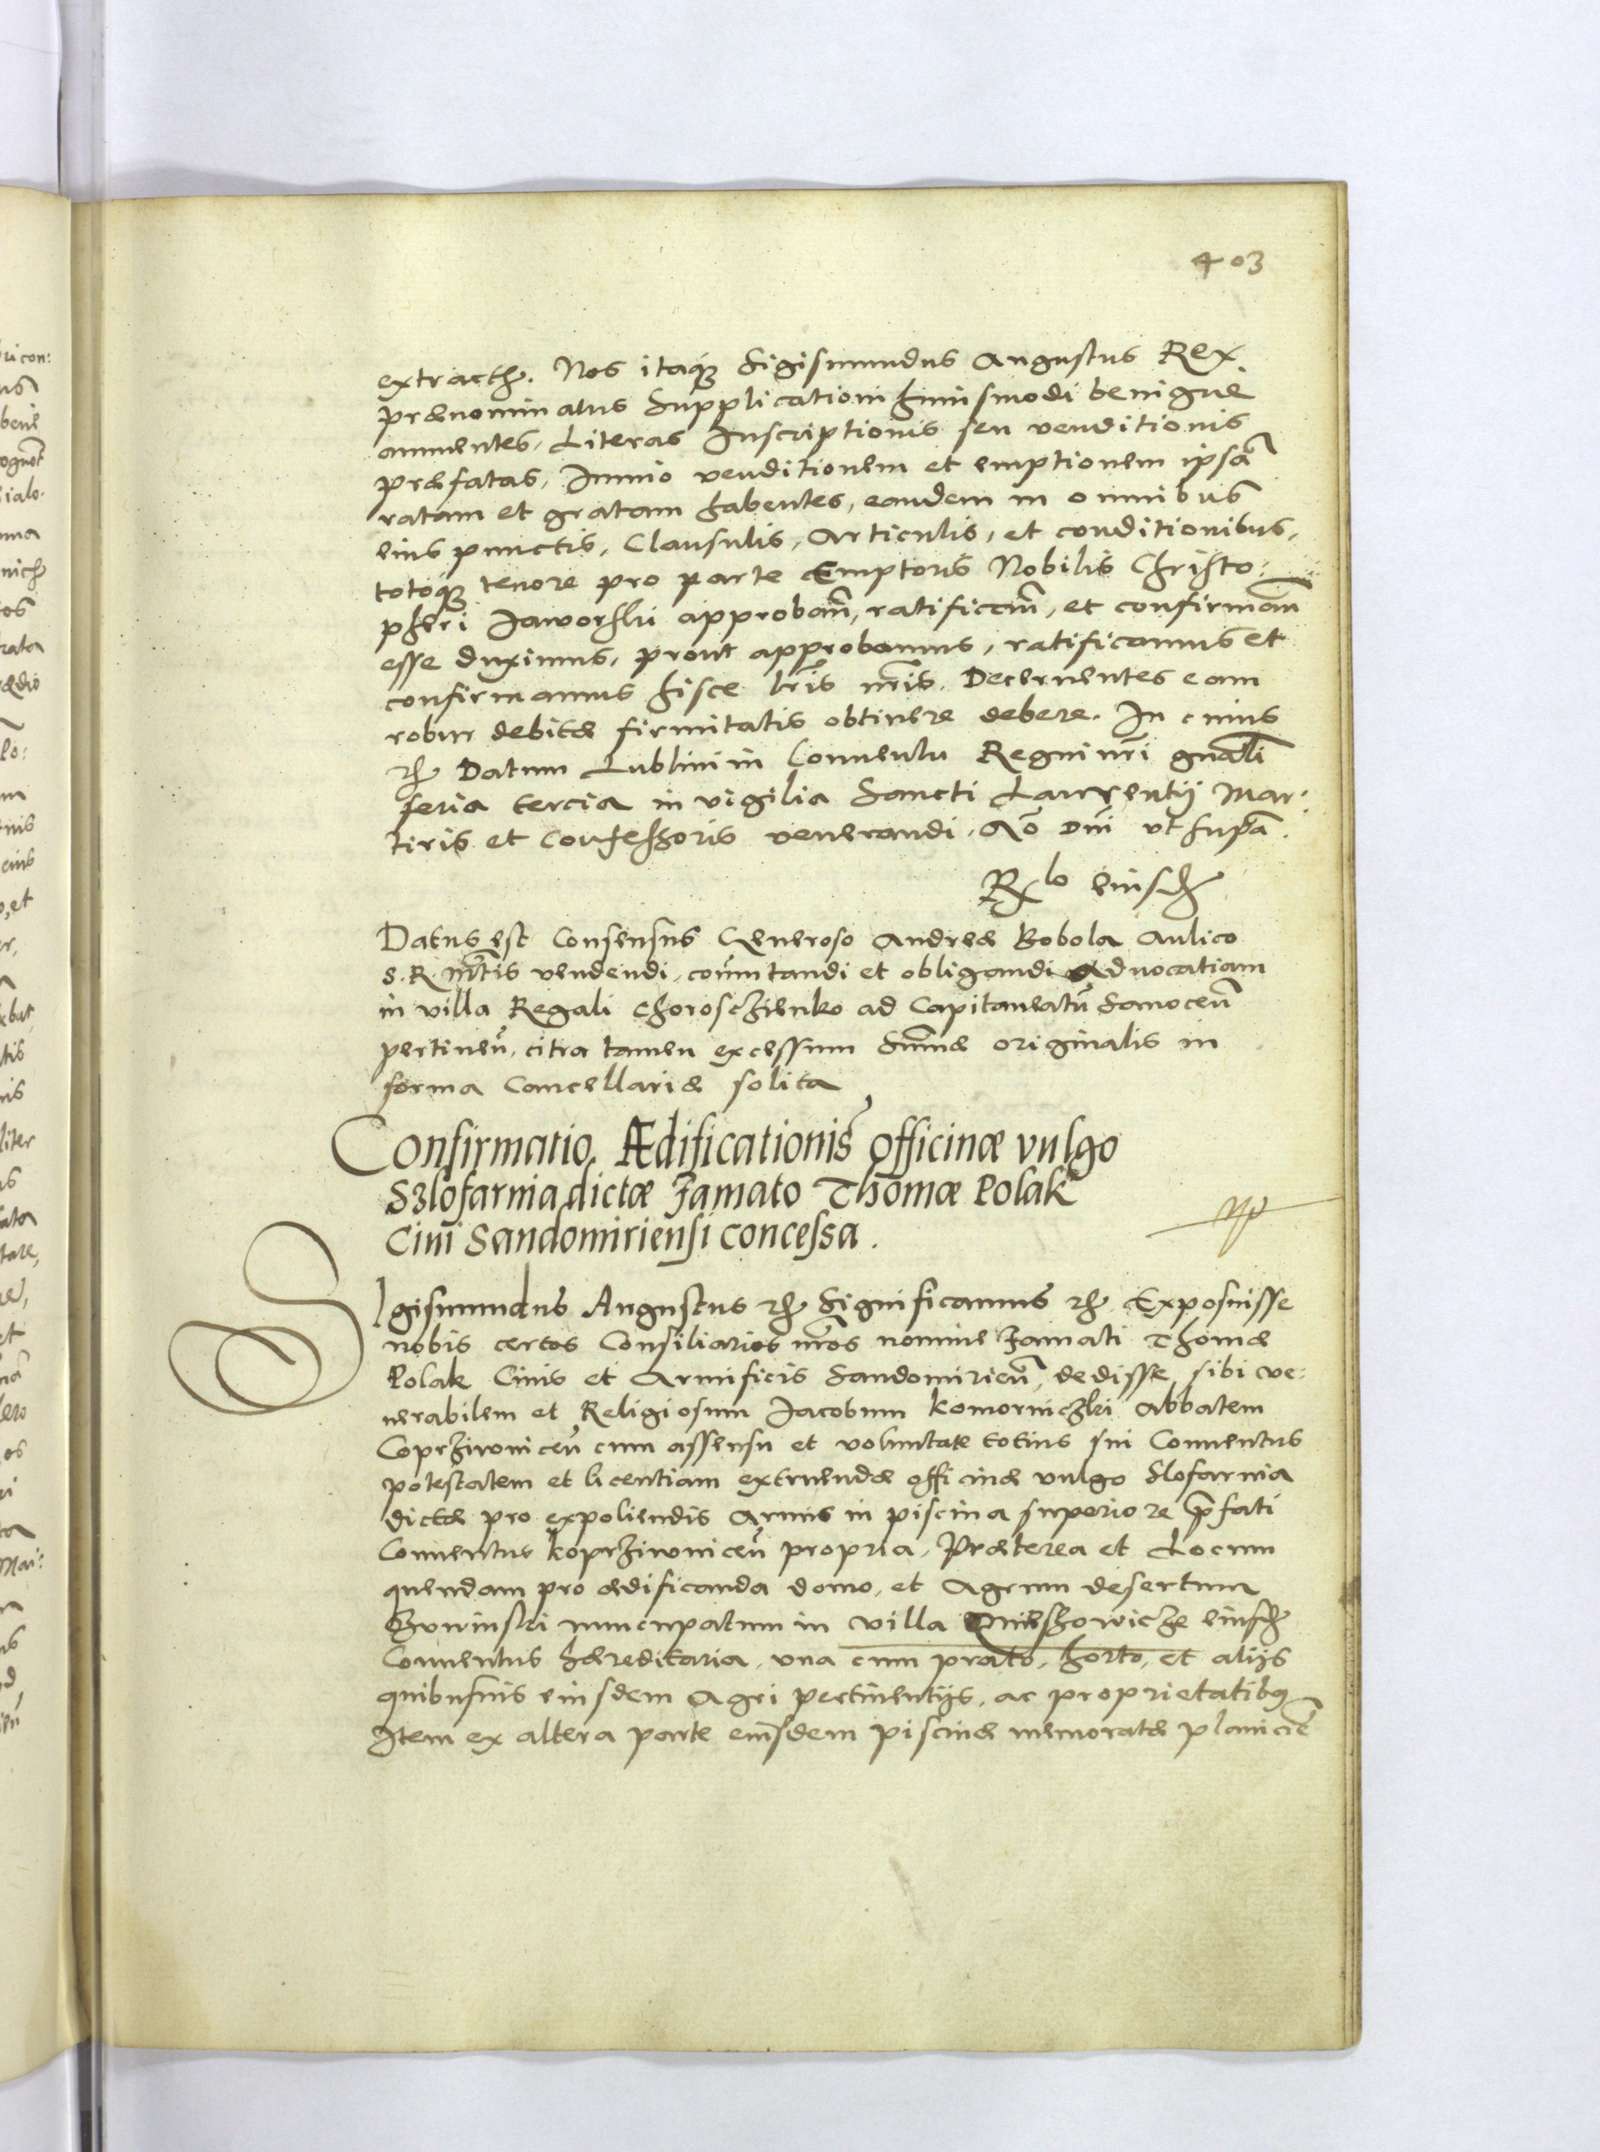 403
extractū. Nos itaq́ȝ Sigismundus Augustus Rex
prænominatus Supplicationi huiusmodi benigne
annuentes, Literas Inscriptionis seu venditionis
præfatas, Immo venditionem et emptionem ipsā
ratam et gratam habentes, eandem in omnibus
eius punctis, Clausulis, Articulis, et conditionibus,
totoq́ȝ tenore pro parte Emptoris Nobilis Christo:
pheri Jaworski approbañ, ratificañ, et confirmañ
esse duximus, prout approbamus, ratificamus et
confirmamus hisce lris nris. Decernentes eam
robur debitæ firmitatis obtinere debere. In cuius
rę Datum Lublini in Conuentu Regni nri gnali
feria tercia in vigilia Sancti Laurentij Mar:
tiris et Confessoris venerandi. Ao Dni vt supra.
Rlo eiusdē
Datus est Consensus Generoso Andreæ Bobola Aulico
S. R. Mtis vendendi, comutandi et obligandi Aduocatiam
in villa Regali Choroschzienko ad Capitaneatū Sanoceñ
pertineñ, citra tamen excessum Summæ originalis in
forma Cancellariæ solita
Confirmatio Ædificationis officinæ vulgo
Szlofarnia dictæ Famato Thomæ Polak
Ciui Sandomiriensi concessa.
Sigismundus Augustus rę Significamus rę Exposuisse
nobis certos Consiliarios nros nomine Famati Thomæ
Polak Ciuis et Armificis Sandomirieñ, dedisse sibi ve:
nerabilem et Religiosum Jacobum Komorniczki Abbatem
Coprziwniceñ cum assensu et voluntate totius sui Conuentus
potestatem et licentiam extruendæ officinæ vulgo Slofarnia
dictæ pro expoliendis Armis in piscina superiore p̄fati
Conuentus Koprziwniceñ propria. Præterea et Locum
quendam pro ædificanda domo, et Agrum desertum
nuncupatum in villa eiusdē
Conuentus hæreditaria, vna cum prato, horto, et alijs
quibusuis eiusdem Agri pertinentijs, ac proprietatibus
Item ex altera parte eiusdem piscinæ memoratæ planiciē